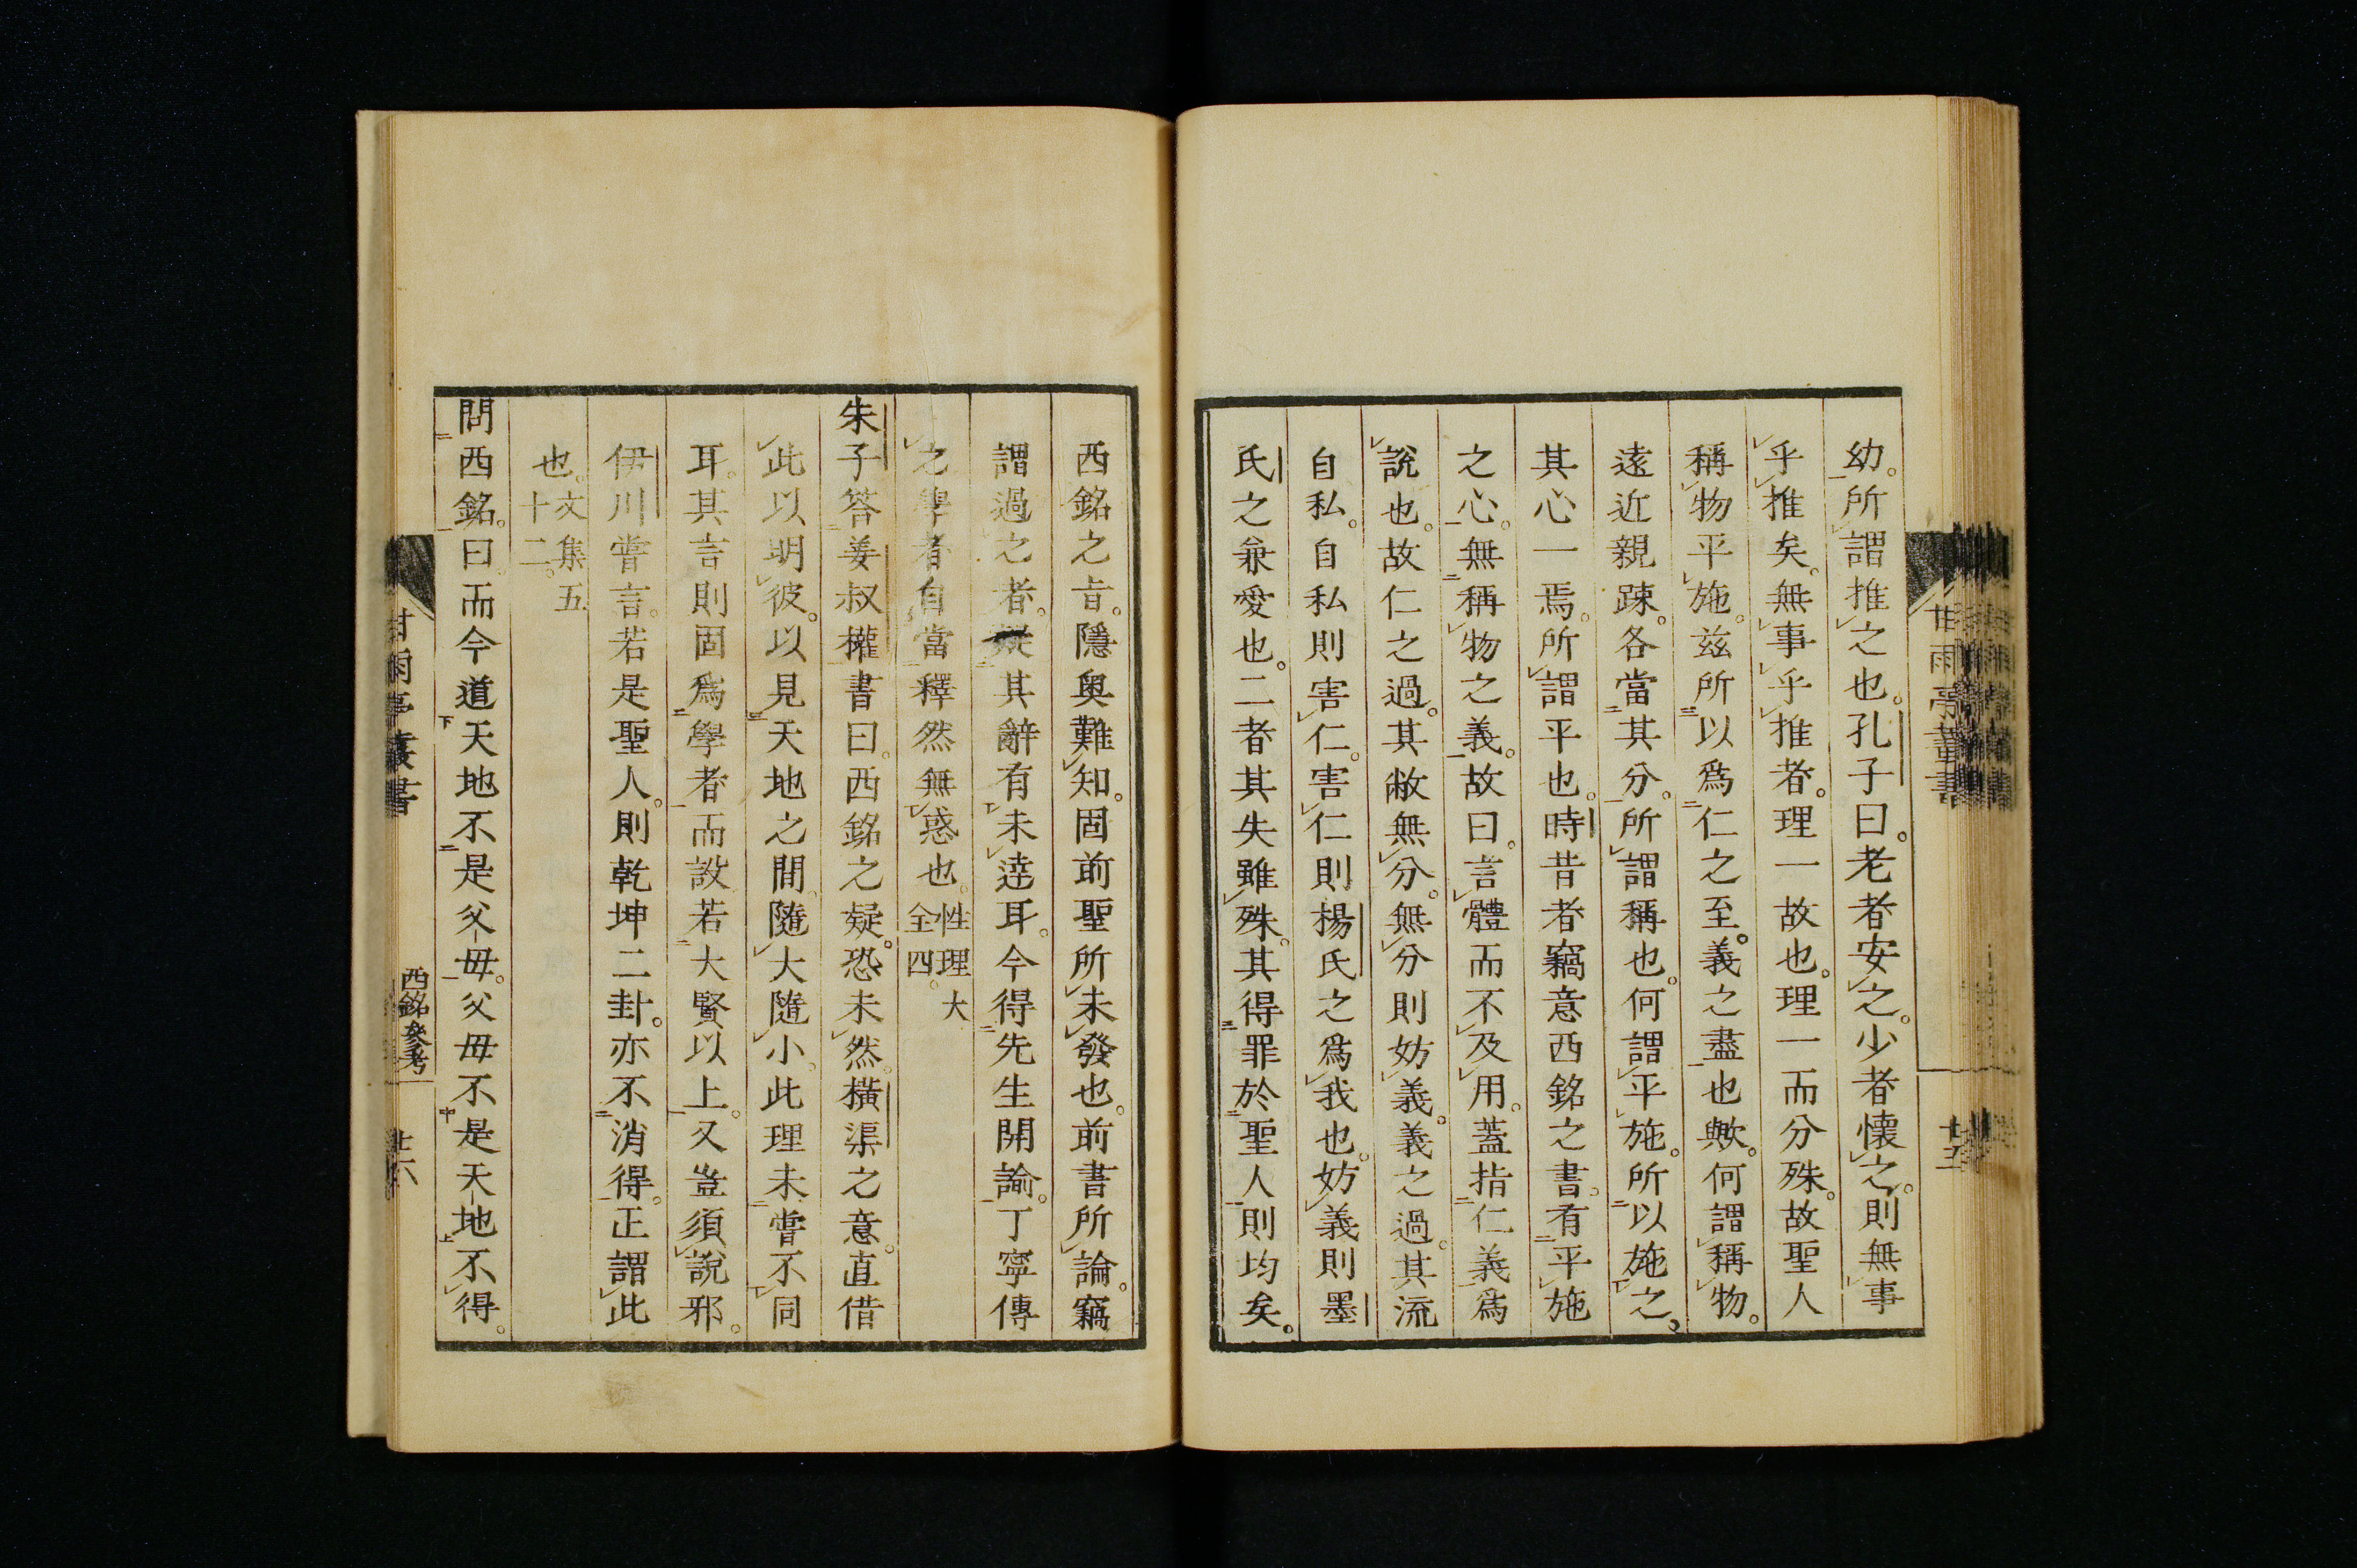 幼。所謂推之也。孔子曰。老者安之。少者懷之。則無事
乎推矣。無事乎推者。理一故也。理一而分殊。故聖人
稱物平施。茲所以爲仁之至。義之盡也歟。何謂稱物。
遠近親踈。各當其分。所謂稱也。何謂平施。所以施之。
其心一焉。所謂平也。時昔者竊意西銘之書。有平施
之心。無稱物之義。故曰。言體而不及用。蓋指仁義爲
說也。故仁之過。其敝無分。無分則妨義。義之過。其流
自私。自私則害仁。害仁則楊氏之爲我也。妨義則墨
氏之兼愛也。二者其失雖殊。其得罪於聖人則均矣。
甘雨亭叢書
廿五
西銘之旨。隱奥難知。固前聖所未發也。前書所論。竊
謂過之者。疑其辭有未達耳。今得先生開諭。丁寧傳
之學者。自當釋然無惑也。性理大全四。
朱子答姜叔權書曰。西銘之疑。恐未然。橫渠之意。直借
此以明彼。以見天地之間。隨大隨小。此理未嘗不同
耳。其言則固爲學者而設。若大賢以上。又豈須說邪。
伊川嘗言。若是聖人。則乾坤二卦。亦不消得。正謂此
也。文集五十二。
問西銘。曰。而今道天地不是父母。父母不是天地不得。
甘雨亭叢書
西銘參考
廿六